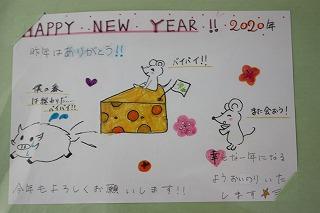 HAPPY NEW YEAR!! 2020年
昨年はありがとう!!
バイバイ!!
僕の番
は終わりだ…
バイバイ!!
また会おう!
幸せな一年になる
ようおいのりいた
します
今年もよろしくお願いします!!